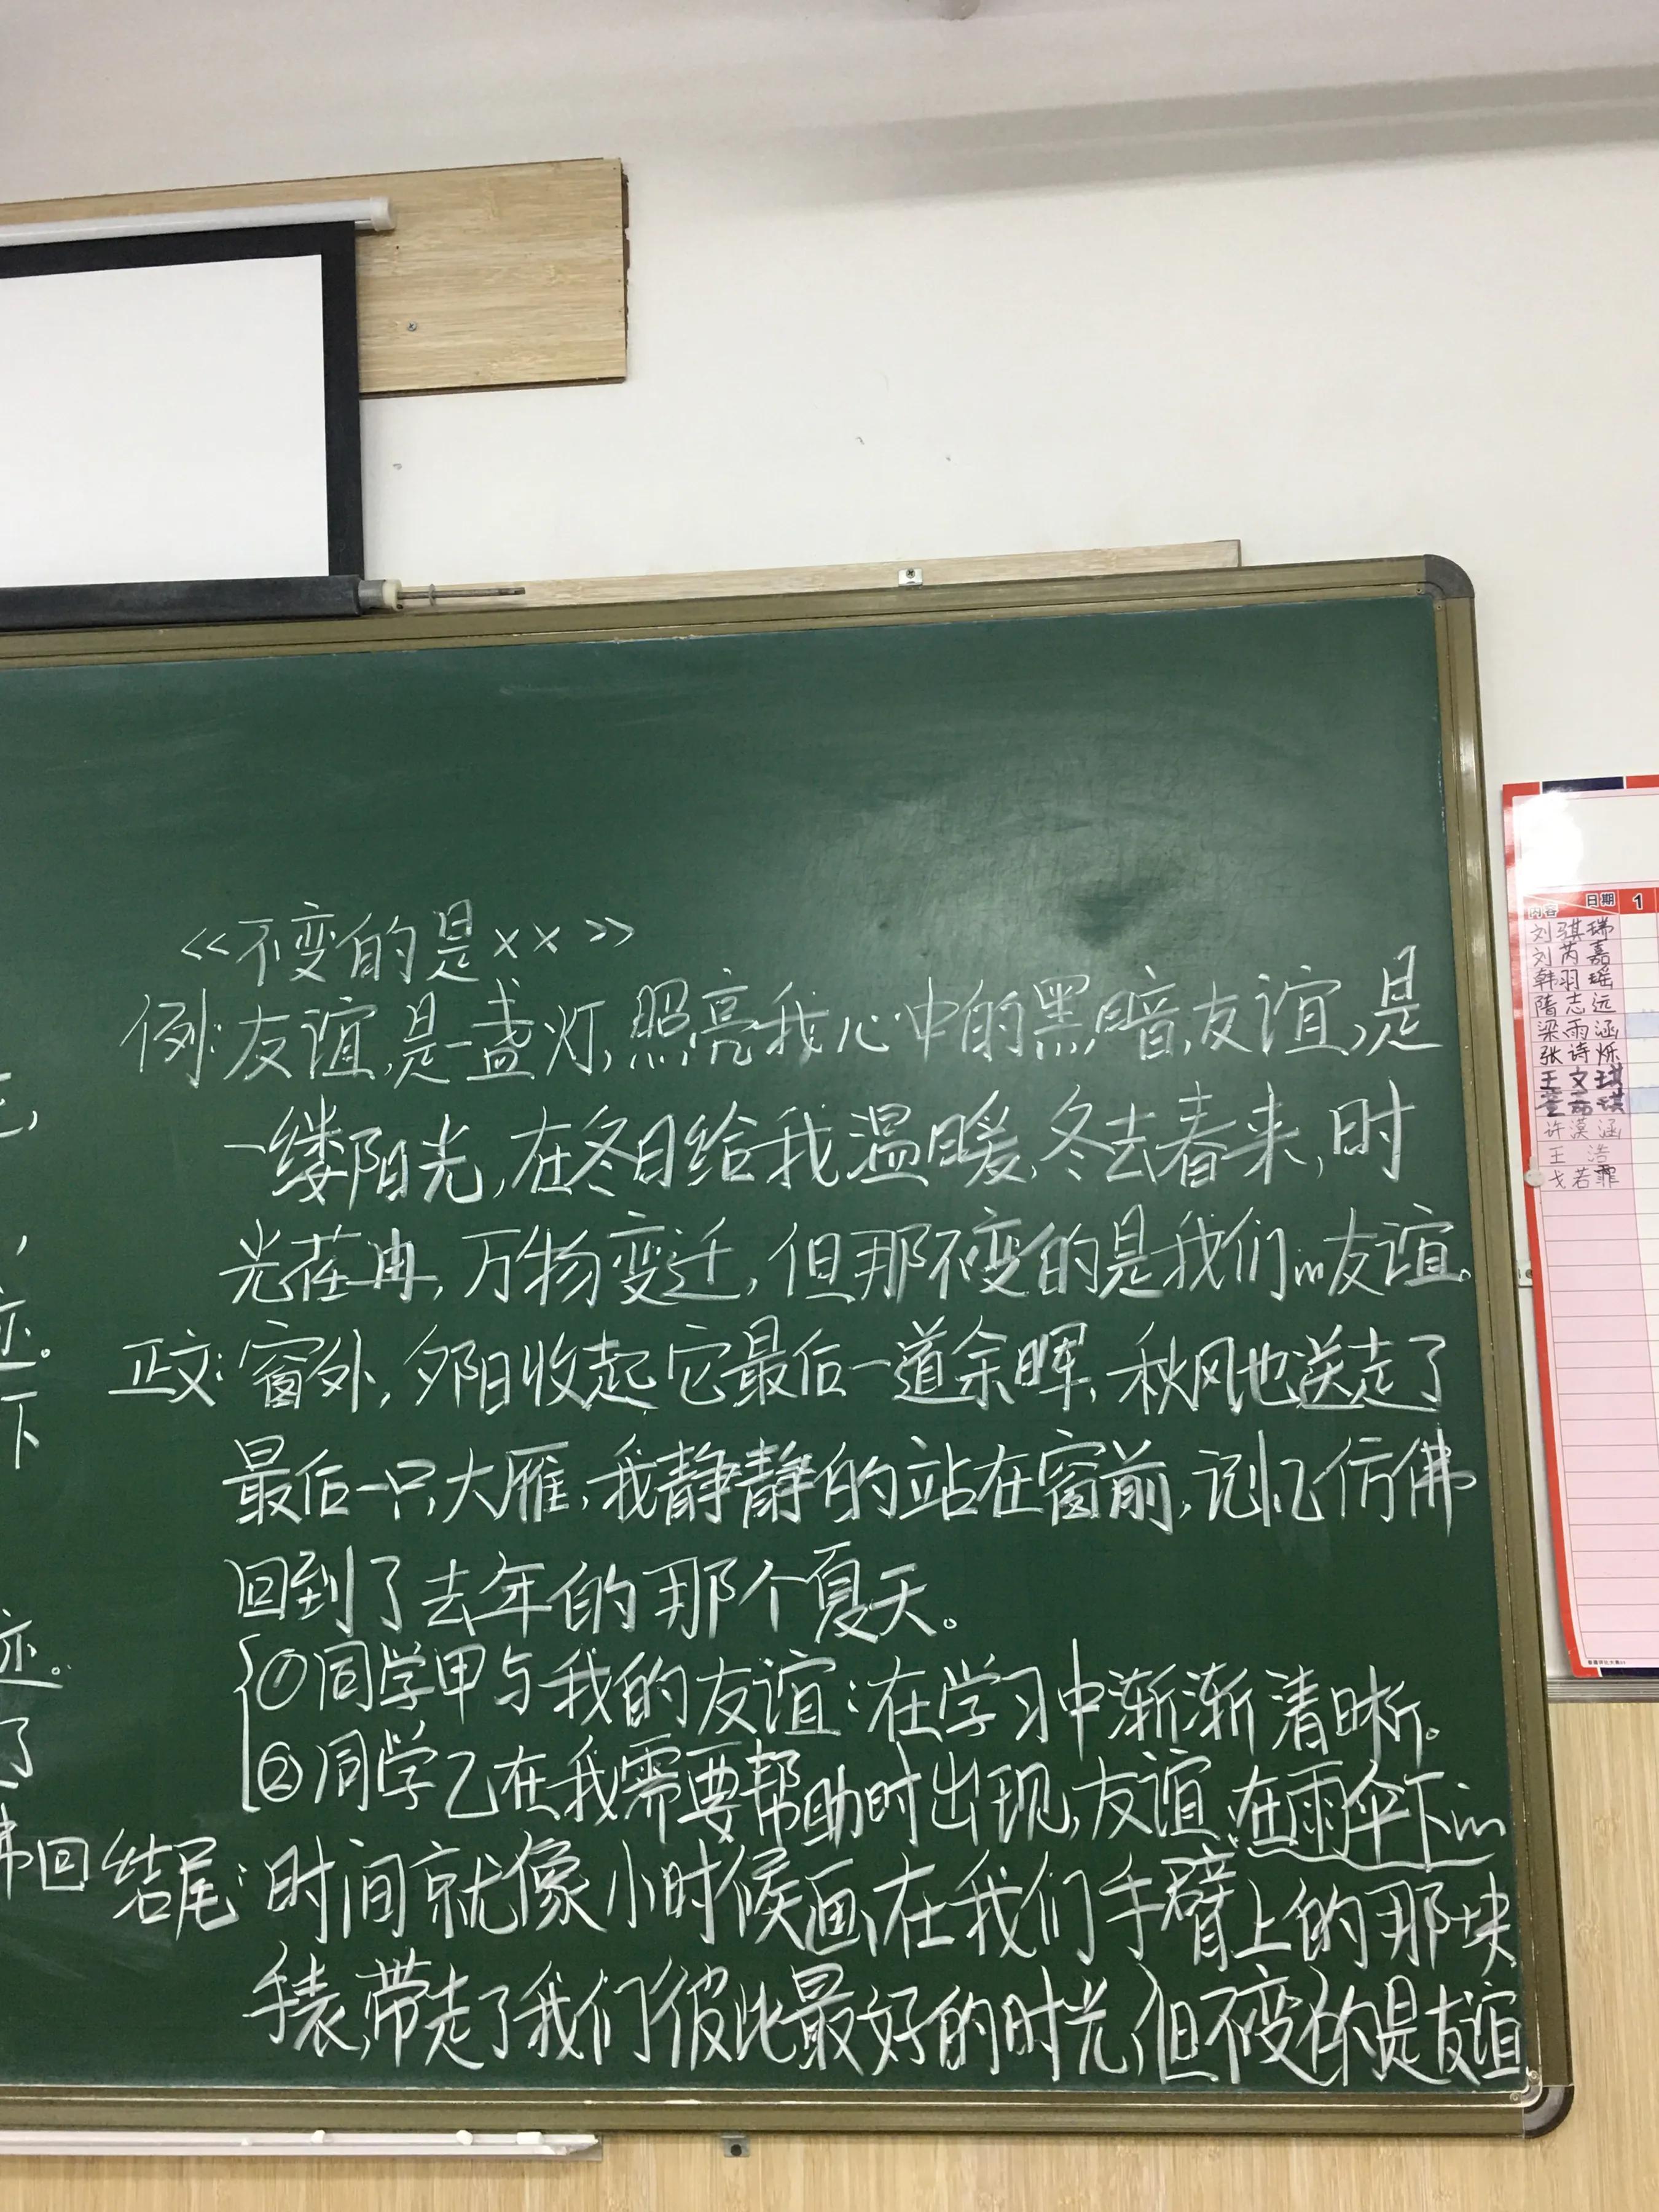 《不变的是××》
例:友谊,是一盏灯,照亮我心中的黑暗,友谊,是
一缕阳光,在冬日给我温暖,冬去春来,时
光荏冉,万物变迁,但那不变的是我们in友谊。
正文:窗外,夕阳收起它最后一道余晖,秋风也送走了
最后一只大雁,我静静的站在窗前,记忆仿佛
回到了去年的那个夏天。
①同学甲与我的友谊:在学习中渐渐清晰。
②同学乙在我需要帮助时出现,友谊在雨伞下in
结尾:时间就像小时候画在我们手臂上的那块
手表,带走了我们彼此最好的时光,但不变的是友谊
迹。
下
迹。
了
佛回
日期 1
内容
刘骐瑞
刘芮嘉
韩羽瑶
隋志远
梁雨涵
张诗烁
王文琪
许漠涵
王浩
戈若霏